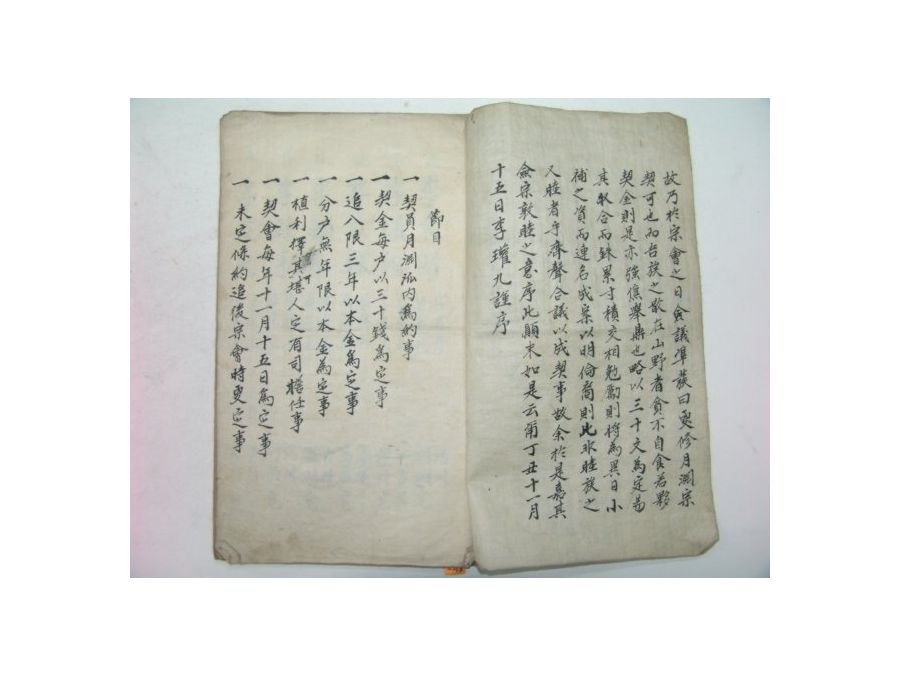 故乃於宗會之日僉議準發曰更修月淵宗
契可也而吾族之散在山野者貪不自食若夥
契金則是亦強僬舉鼎也略以三十文為定昜
其取合而銖累寸積交相勉勵則將為異日小
補之資而連名成案以明倫裔則此非睦族之
又睦者乎齊聲合議以成契事故余於是嘉其
僉宗敦睦之意序此顛末如是云爾丁丑十一月
十五日李瓊九謹序
節目
一契員月淵派內為約事
一契金每戶以三十錢為定事
一追入限三年以本金為定事
一分戶無年限以本金為定事
一植利擇其堪人定有司擔任事
一契會每年十一月十五日為定事
一未定條約追後宗會時更定事